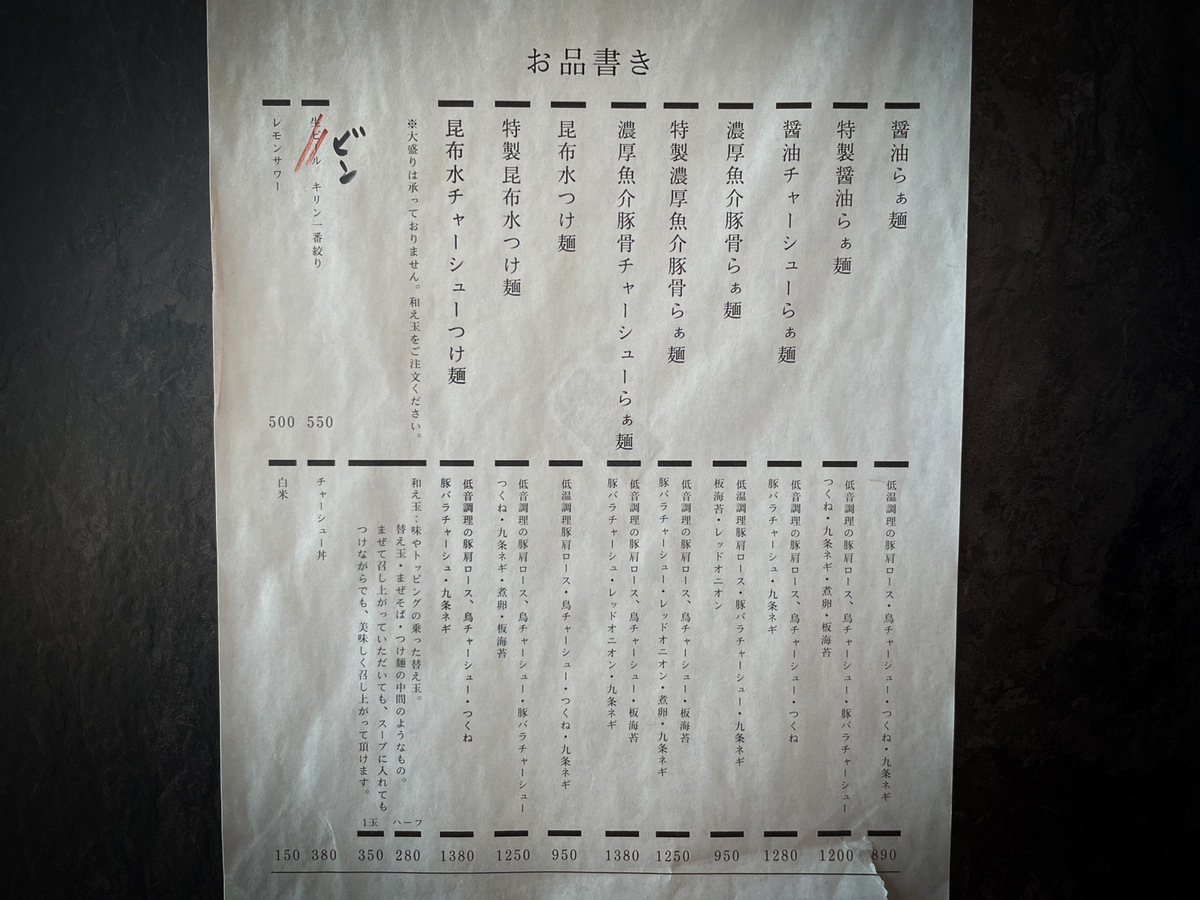 お品書き
醤油らぁ麺
低温調理の豚肩ロース・鳥チャーシュー・つくね・九条ネギ
890
特製醤油らぁ麺
低音調理の豚肩ロース、鳥チャーシュー・豚バラチャーシュー
つくね・九条ネギ・煮卵・板海苔
1200
醤油チャーシューらぁ麺
低音調理の豚肩ロース、鳥チャーシュー・つくね
豚バラチャーシュ・九条ネギ
1280
濃厚魚介豚骨らぁ麺
低温調理豚肩ロース・豚バラチャーシュー・九条ネギ
板海苔・レッドオニオン
950
特製濃厚魚介豚骨らぁ麺
低音調理の豚肩ロース、鳥チャーシュー・板海苔
豚バラチャーシュー・レッドオニオン・煮卵・九条ネギ
1250
濃厚魚介豚骨チャーシューらぁ麺
低音調理の豚肩ロース、鳥チャーシュー・板海苔
豚バラチャーシュ・レッドオニオン・九条ネギ
1380
昆布水つけ麺
低温調理豚肩ロース・鳥チャーシュー・つくね・九条ネギ
950
特製昆布水つけ麺
低音調理の豚肩ロース、鳥チャーシュー・豚バラチャーシュー
つくね・九条ネギ・煮卵・板海苔
1250
昆布水チャーシューつけ麺
低音調理の豚肩ロース、鳥チャーシュー・つくね
豚バラチャーシュ・九条ネギ
1380
※大盛りは承っておりません。和え玉をご注文ください。
和え玉：味やトッピングの乗った替え玉。
替え玉・まぜそば・つけ麺の中間のようなもの。
まぜて召し上がっていただいても、スープに入れても
つけながらでも、美味しく召し上がって頂けます。
ハーフ
280
1玉
350
ビン
生ビール キリン一番絞り
550
レモンサワー
500
チャーシュー丼
380
白米
150